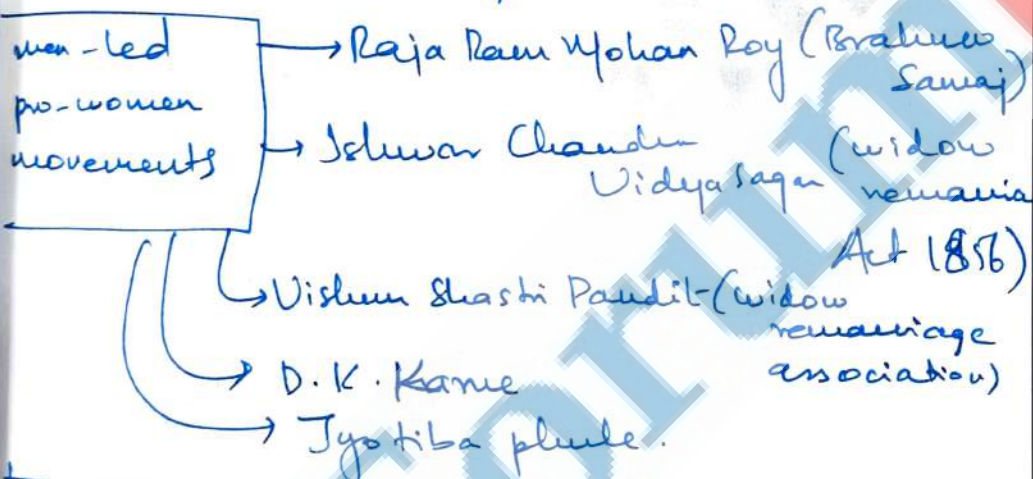 men-led
pro-women
movements
→ Raja Ram Mohan Roy (Brahmo
Samaj)
→ Ishwar Chandra (widow
Vidyasagar remarria
Act 1856)
→ Vishnu Shastri Pandit-(widow
remarriage
association)
→ D.K. Karve
→ Jyotiba phule.
orum